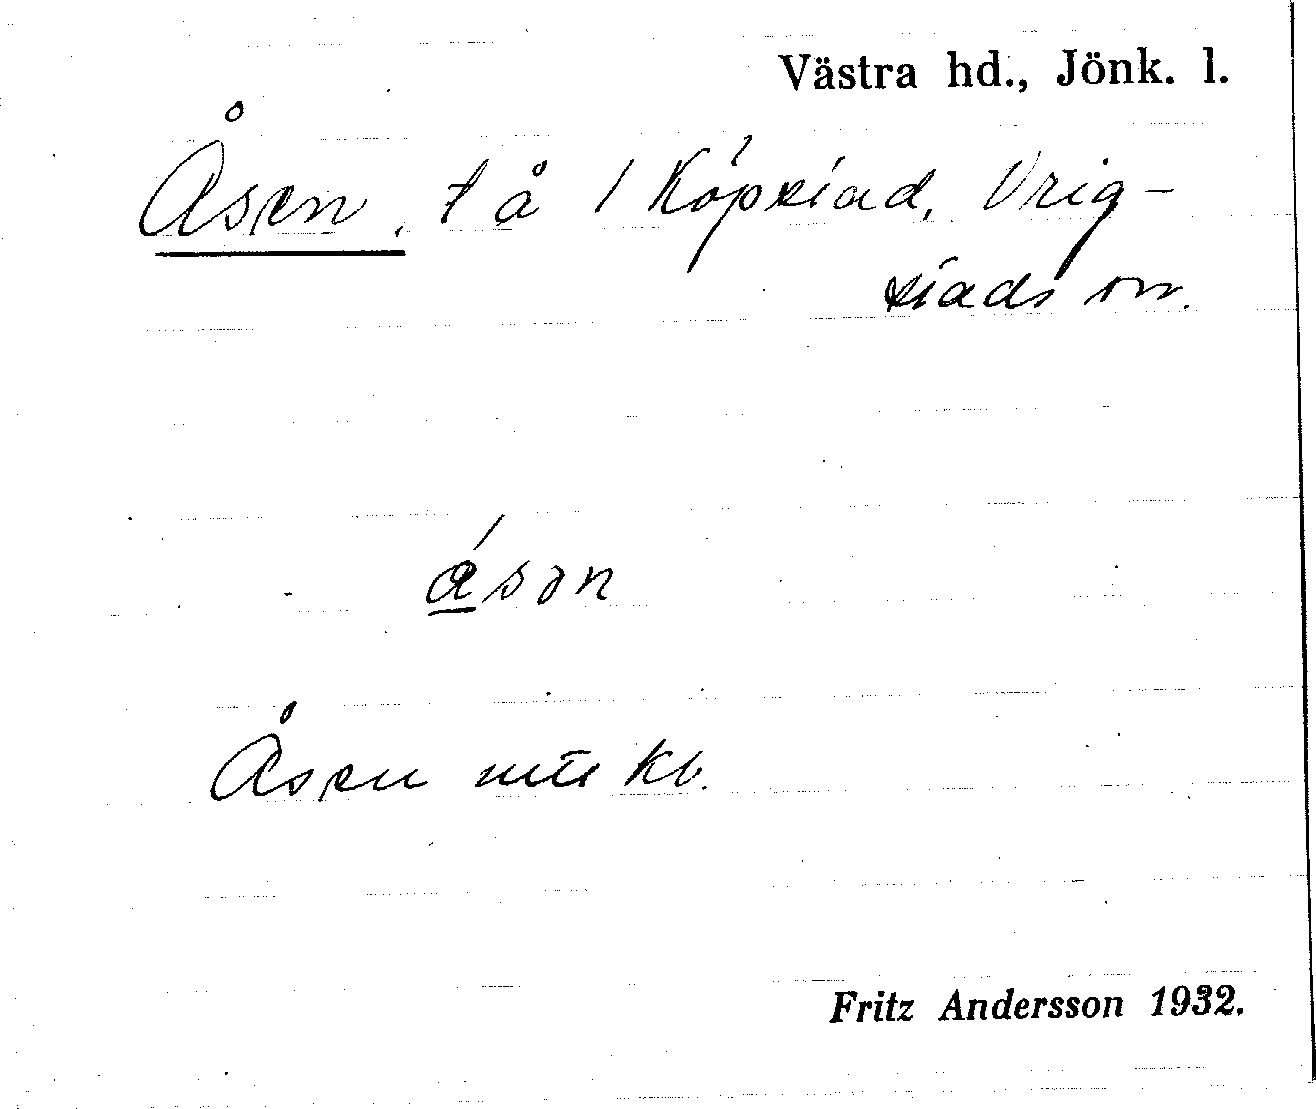 Västra hd., Jönk. l.
Åsen, t å 1 Köpstad, Vrig-
stads sn.
á̲sən
Åsen mtl kb.
Fritz Andersson 1932.